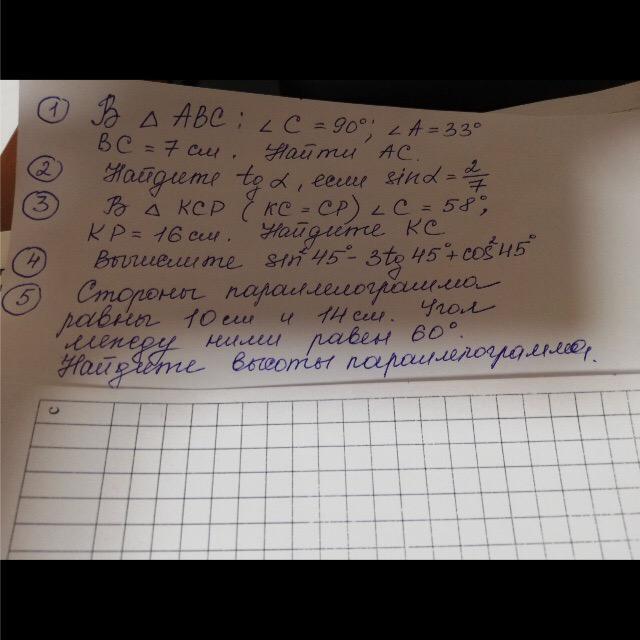 ① В △ ABC: ∠C = 90°; ∠A = 33°
BC = 7 см. Найти AC.
② Найдите tg α, если sin α = 2/7
③ В △ КСР (КС = СР) ∠C = 58°,
КР = 16 см. Найдите КС
④ Вычислите sin²45° - 3tg45° + cos²45°
⑤ Стороны параллелограмма
равны 10 см и 14 см. Угол
между ними равен 60°.
Найдите высоты параллелограмма.